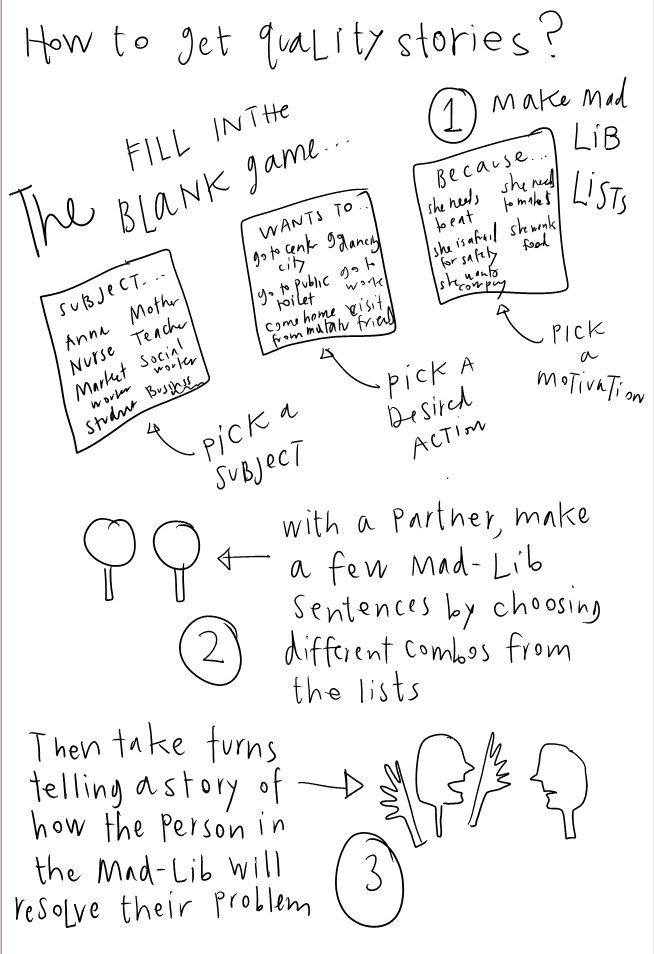 How to get quality stories?
FILL IN THE
The BLANK game...
1 Make Mad
LiB
LiSTS
SUBJECT....
Anna
Nurse
Market
worker
Student
Mother
Teacher
Social
worker
WANTS TO...
go to
city
go dancing
go to public
toilet
go to
work
come home
from
visit
friend
BECAUSE...
she needs
to eat
she need
to make $
she is afraid
for safety
she
food
she wants
company
PiCK a
SUBJECT
PiCK A
Desired
ACTiON
PiCK
a
MOTiVATiON
with a Partner, make
a few Mad-Lib
Sentences by choosing
different combos from
the lists
2
Then take turns
telling a story of
how the Person in
the Mad-Lib will
resolve their Problem
3